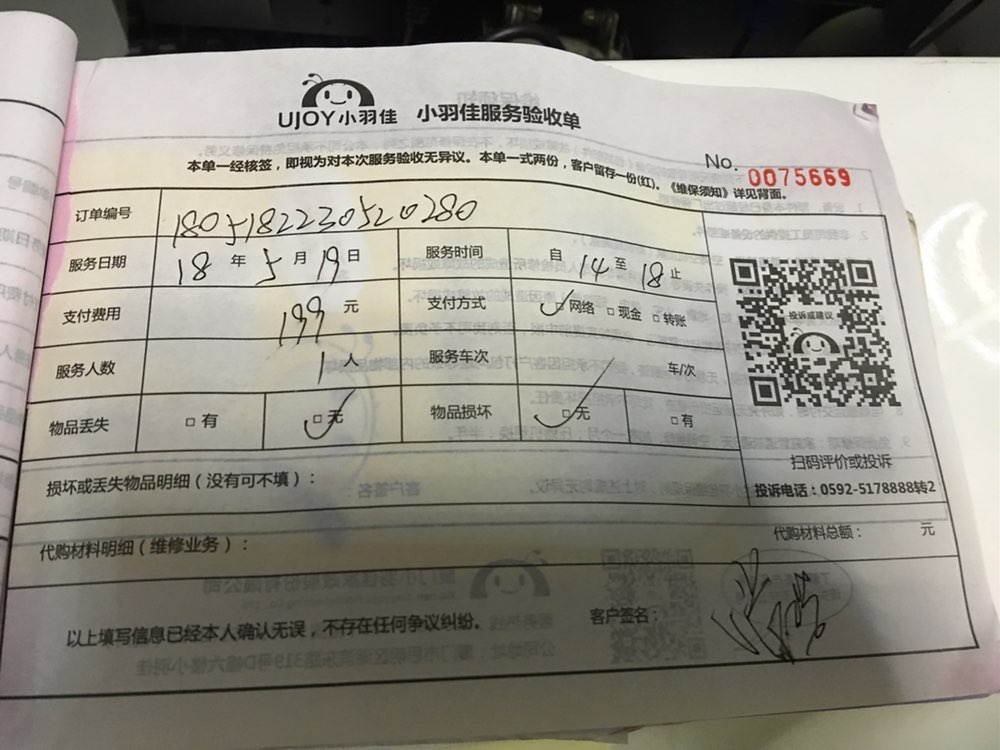 UJOY小羽佳 小羽佳服务验收单
本单一经核签，即视为对本次服务验收无异议。本单一式两份，客户留存一份(红)。《维保须知》详见背面。
No. 0075669
订单编号 1805182230520280
服务日期 18 年 5 月 19 日 服务时间 自 14 至 18 止
支付费用 199 元 支付方式 □网络 □现金 □转账
服务人数 1 人 服务车次 / 车/次
物品丢失 □有 □无 物品损坏 □无 □有
投诉或建议
扫码评价或投诉
投诉电话：0592-5178888转2
损坏或丢失物品明细（没有可不填）：
代购材料明细（维修业务）： 代购材料总额： 元
以上填写信息已经本人确认无误，不存在任何争议纠纷。 客户签名：